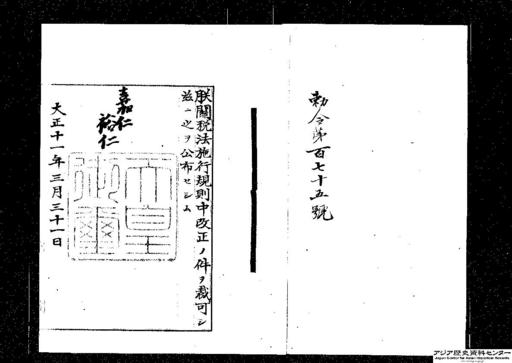 勅令第百七十五號
朕關税法施行規則中改正ノ件ヲ裁可シ
茲ニ之ヲ公布セシム
嘉仁
裕仁
天皇御璽
大正十一年三月三十一日
アジア歴史資料センター
Japan Center for Asian Historical Records